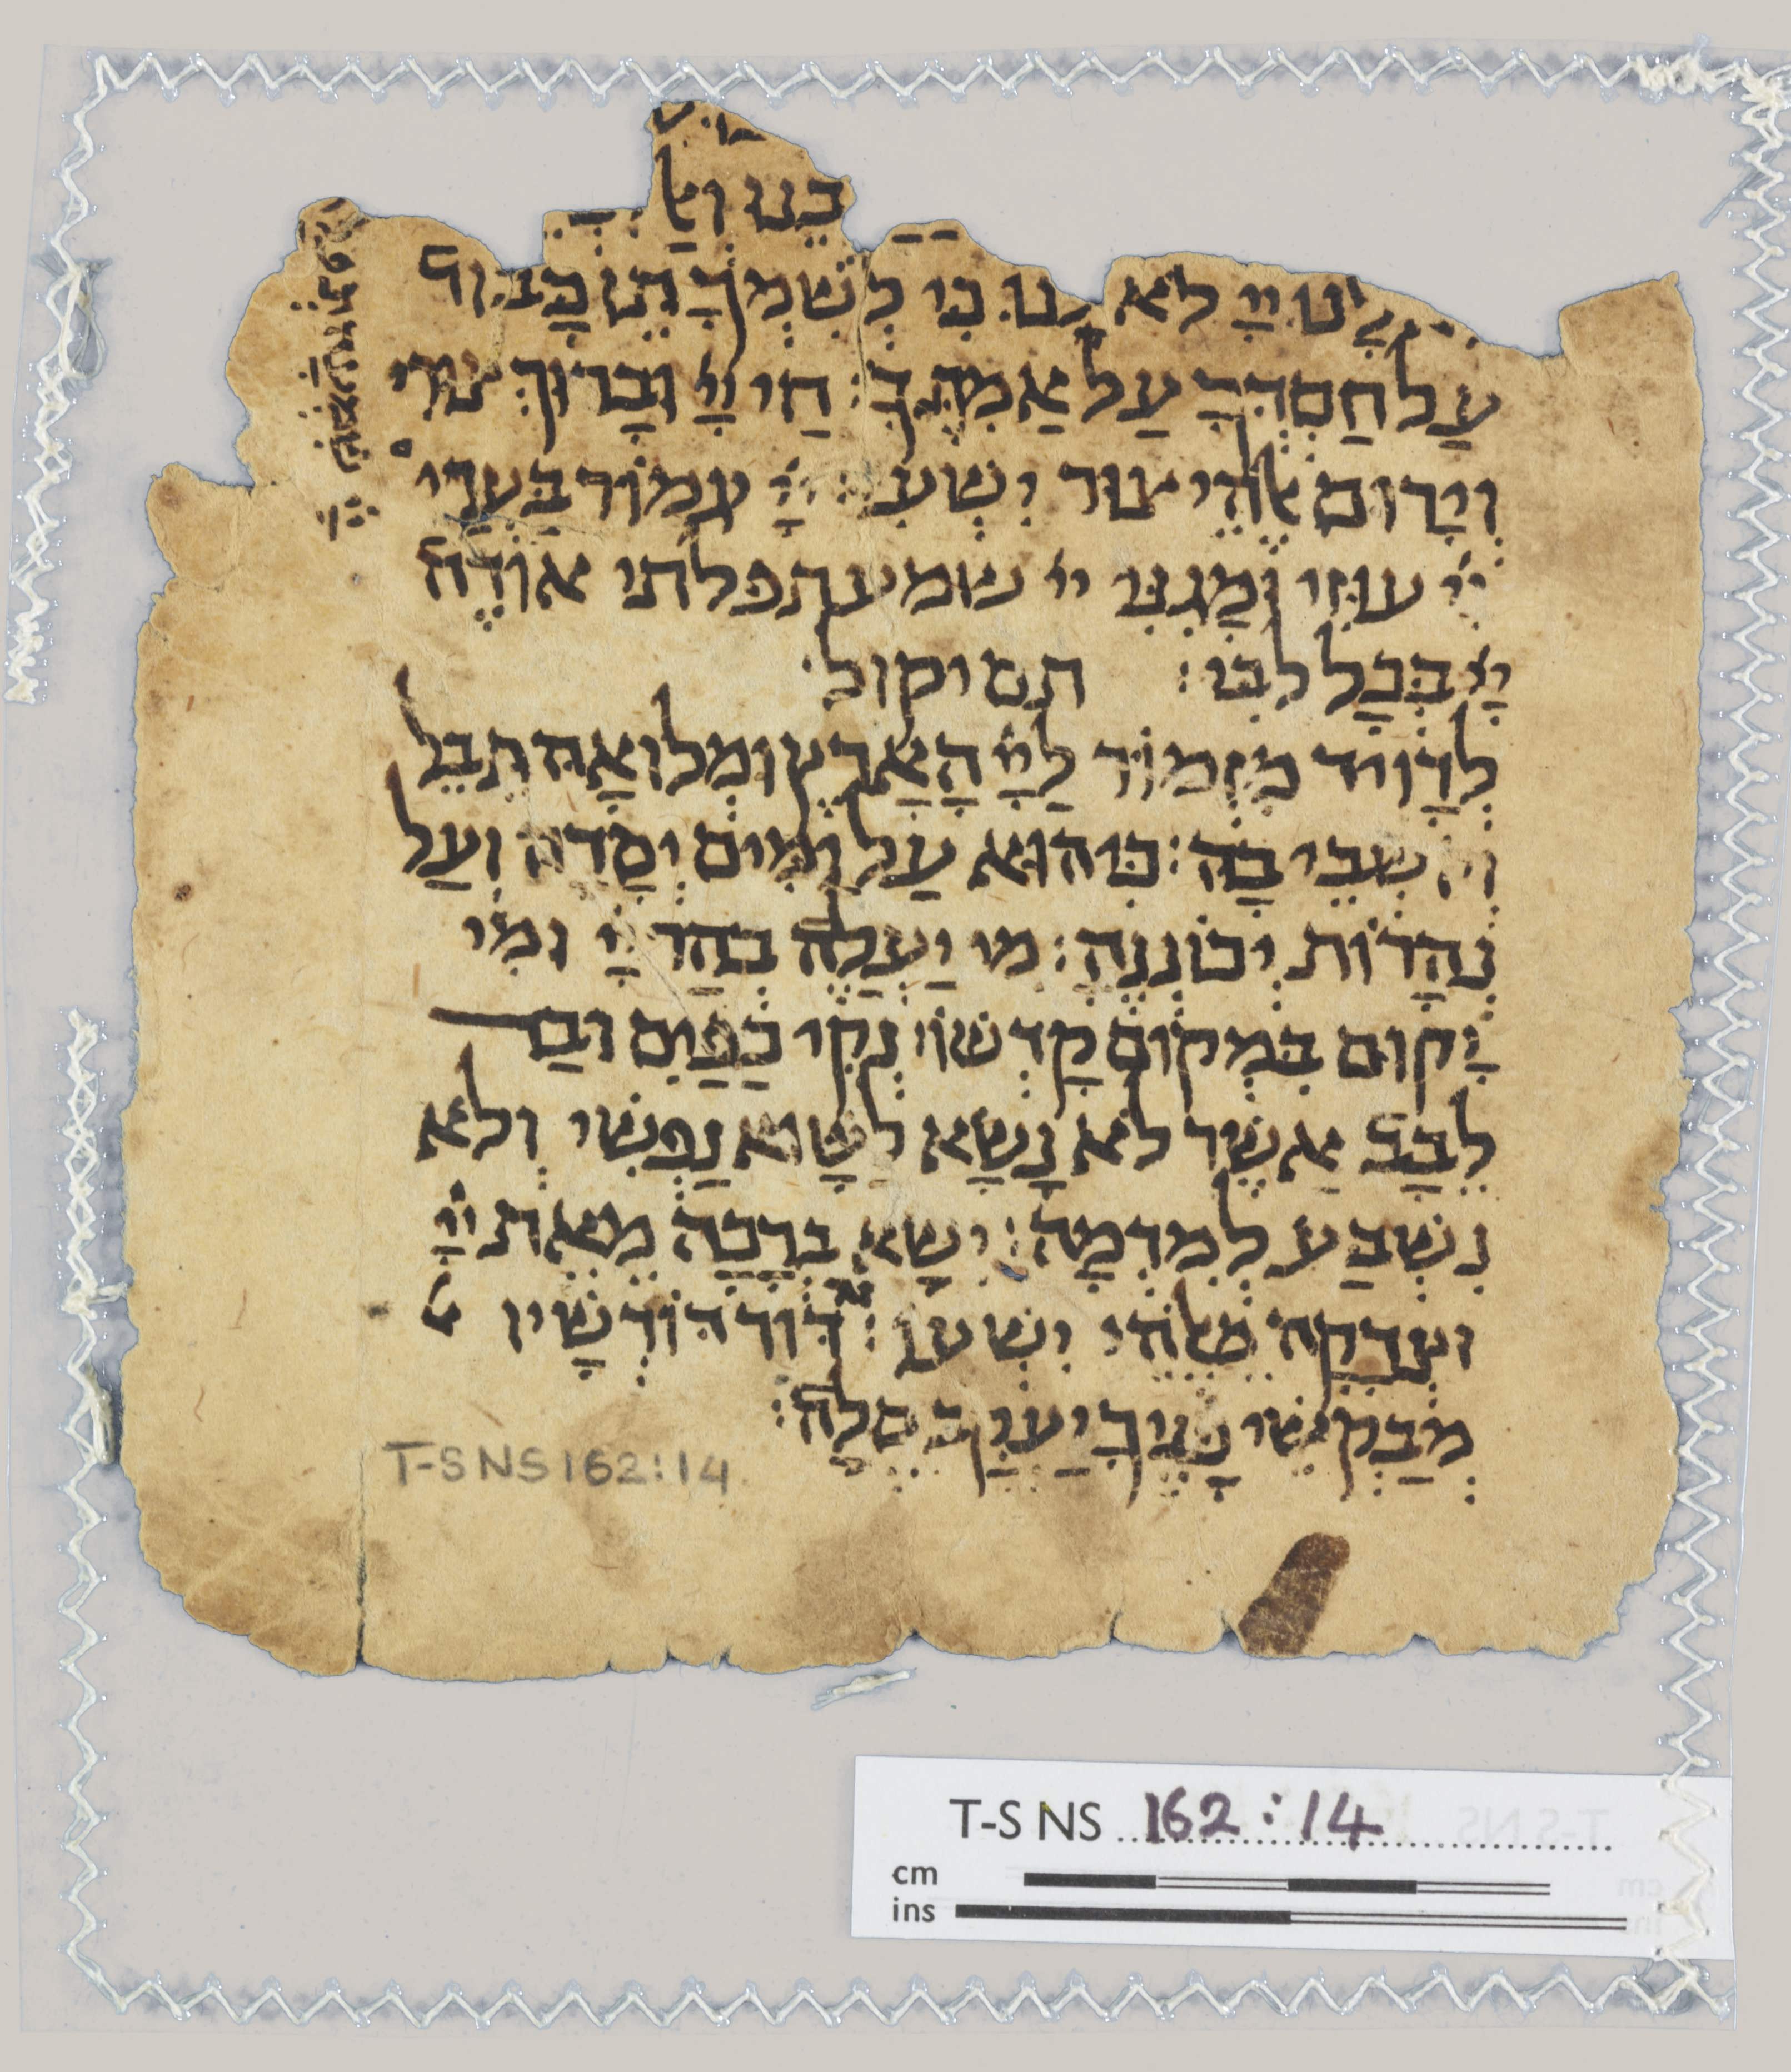 בנו וא
לנו יי לא לנו כי לְשִׁמְךָ תֵן כָּבוֹד
עַל חַסְדְּךָ עַל אֲמִתֶּךָ: חַי יְיָ וּבָרוּךְ צורי
וְיָרוּם אֱלֹהֵי צוּר יִשְׁעִי יְיָ עמוד בַּעֲדֵי
יְיָ עוּזִי וּמָגִנִּי יי שמע תפלתי אוֹדֶה
יְיָ בְּכָל לִבִּי: תם יקול
לְדָוִיד מִזְמוֹר לַיְיָ הָאָרֶץ וּמְלוֹאָהּ תֵּבֵל
וְיֹשְׁבֵי בָהּ: כִּי הוּא עַל יַמִּים יְסָדָהּ וְעַל
נְהָרוֹת יְכוֹנְנֶהָ: מי יַעֲלֶה בְהַר יְיָ וּמִי
יָקוּם בִּמְקוֹם קָדְשׁוֹ: נְקִי כַפַּיִם וּבַר
לֵבָב אֲשֶׁר לֹא נָשָׂא לַשָּׁוא נַפְשִׁי וְלֹא
נִשְׁבַּע לְמִרְמָה: יִשָּׂא בְרָכָה מֵאֵת יְיָ
וּצְדָקָה מֵאֱלֹהֵי יִשְׁעוֹ: זה דּוֹר דּוֹרְשָׁיו
מְבַקְשֵׁי פָנֶיךָ יַעֲקֹב סֶלָה:
T-S NS 162:14
T-S NS 162:14
cm
ins